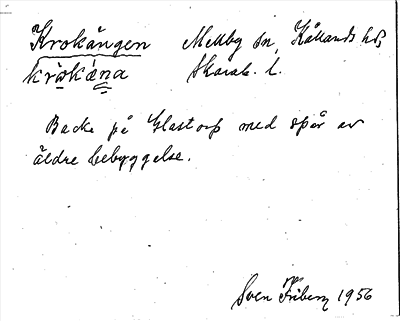 Krokängen Mellby sn, Kållands hd,
krokäna Skarab. l.
Backe på Glastorp med spår av
äldre bebyggelse.
Sven Friberg 1956